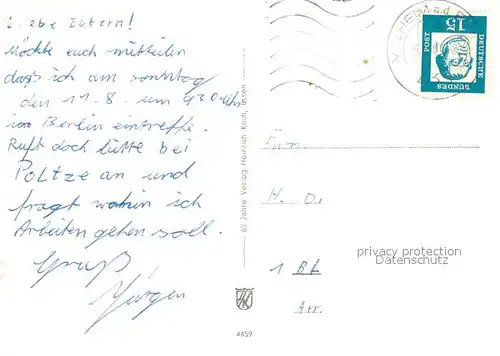 Liebe Eltern!
Möchte euch mitteilen
daß ich am sonntag
den 11.8. um 9.20 Uhr
in Berlin eintreffe.
Ruft doch bitte bei
Poltze an und
fragt wohin ich
Arbeiten gehen soll.
Gruß
Jürgen
60 Jahre Verlag Heinrich Koch,
4459
15
DEUTSCHE
BUNDES
POST
Fam.
H. D.
1 Bl
Arr.
privacy protection
Datenschutz